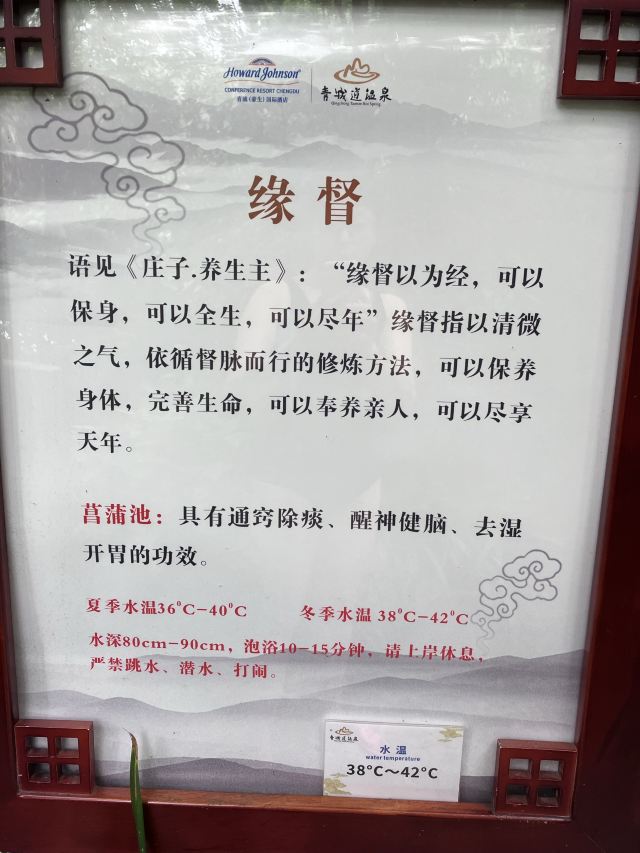 Howard Johnson
CONFERENCE RESORT CHENGDU
青城道温泉
Qingcheng Taoism Hot Spring
缘督
语见《庄子.养生主》：“缘督以为经，可以
保身，可以全生，可以尽年”缘督指以清微
之气，依循督脉而行的修炼方法，可以保养
身体，完善生命，可以奉养亲人，可以尽享
天年。
菖蒲池：具有通窍除痰、醒神健脑、去湿
开胃的功效。
夏季水温36°C-40°C 冬季水温 38°C-42°C
水深80cm-90cm，泡浴10-15分钟，请上岸休息，
严禁跳水、潜水、打闹。
青城道温泉
水温
water temperature
38°C～42°C